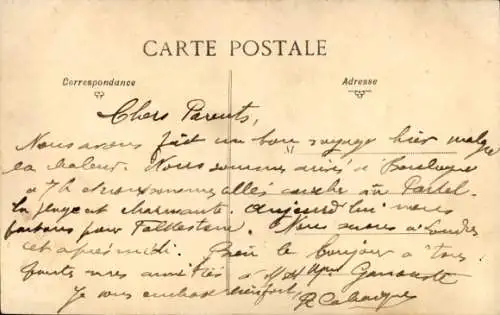 CARTE POSTALE
Correspondance
Adresse
Chers Parents,
Nous avons fait un bon voyage hier malgré
la chaleur. Nous sommes arrivés à Boulogne
à 7h et nous sommes allés coucher au Portel.
la plage est charmante. Aujourd'hui nous
partons pour Folkestone. Nous serons à Londres
cet après midi. le bonjour à tous.
toutes mes amitiés à
Je vous embrasse bien fort,